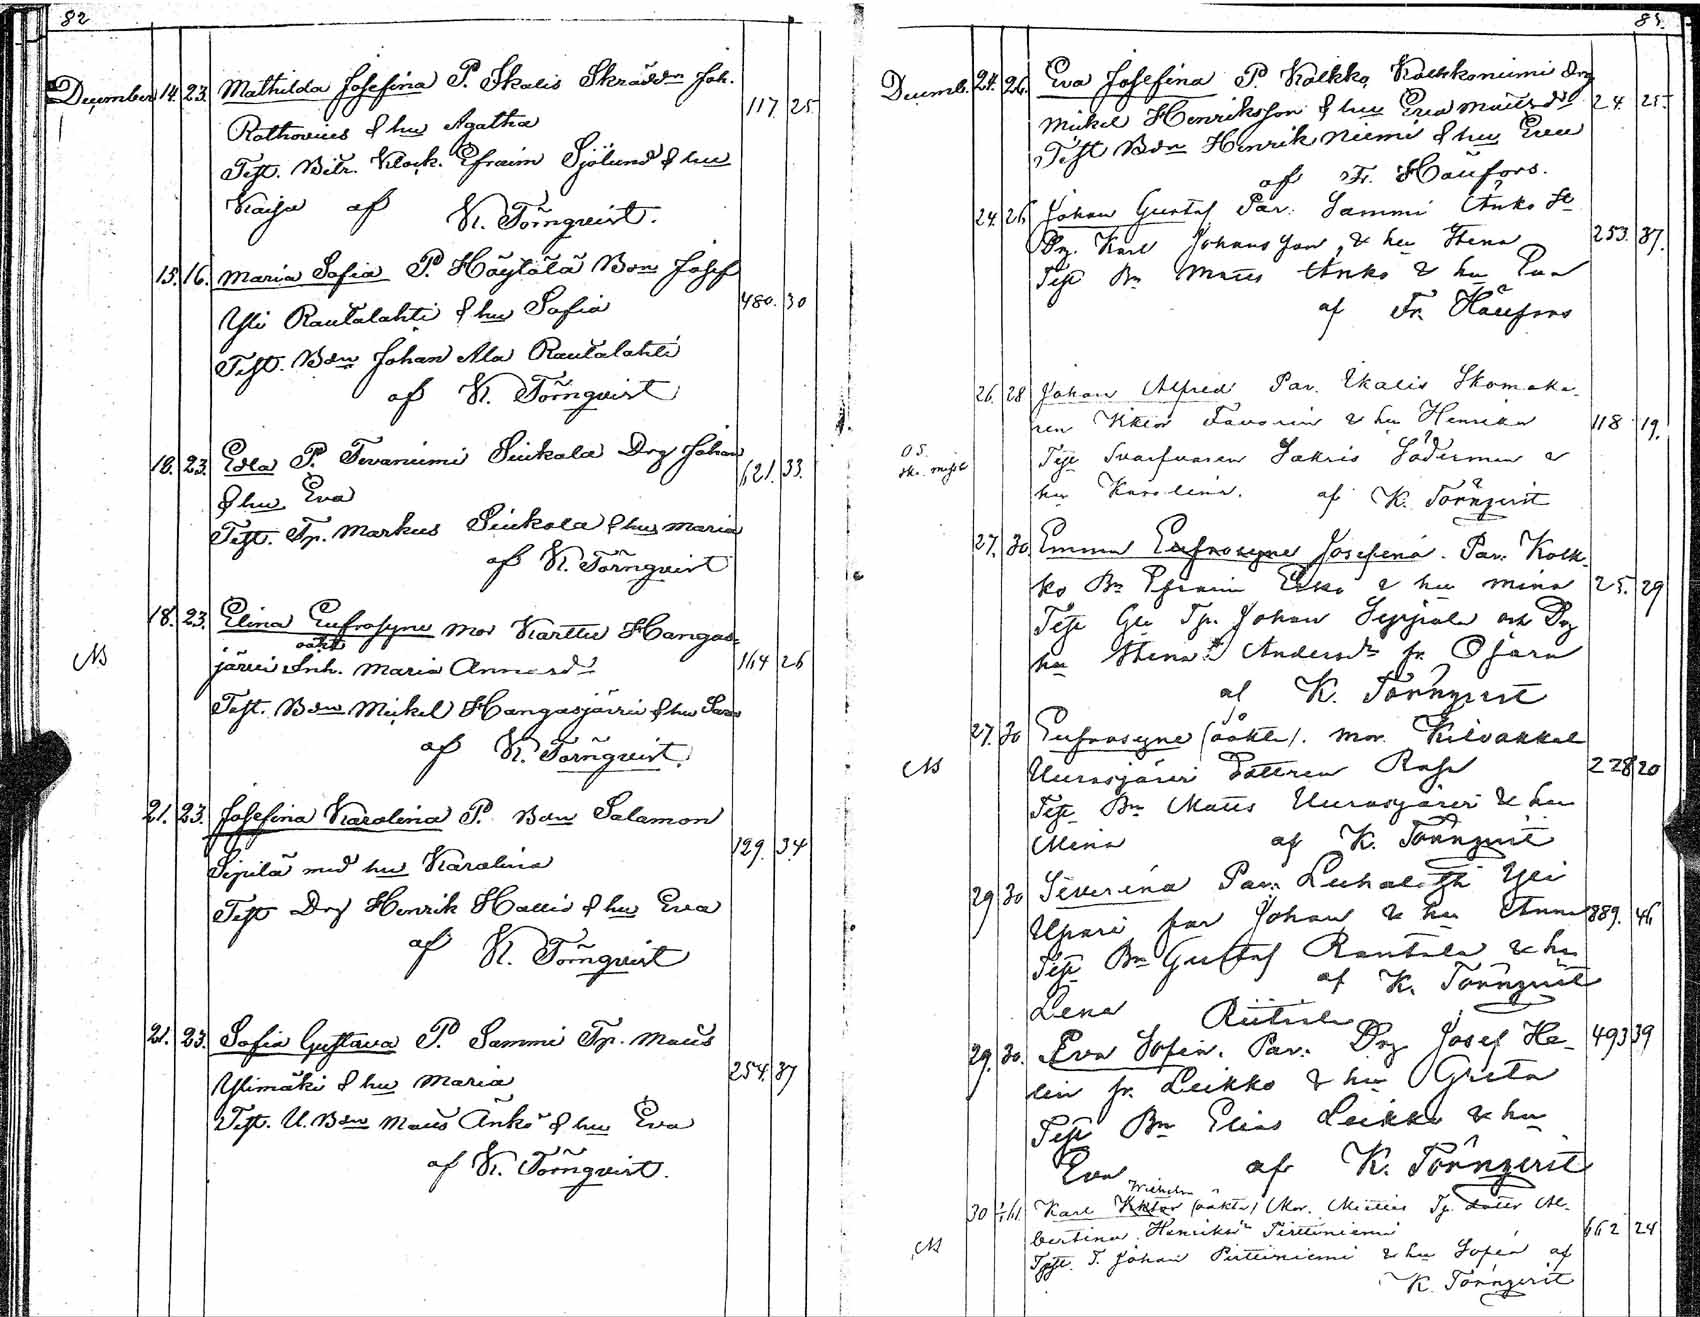 82
December 14. 23. Mathilda Josefina P. Ikalis Skräddn Joh.
Rothovius & hu Agatha 117 25
Test. Bitr. Klock. Efraim Sjölund & hu
Kaisa af K. Törnqvist.
15. 16. Maria Sofia P. Höytölä Bdn Josef
Yli Rautalahti & hu Sofia 480. 30
Test. Bdn Johan Ala Rautalahti
af K. Törnqvist
18. 23. Edla P. Tevaniemi Siukola Drg Johan
& hu Eva 621. 33.
Test. Tp. Markus Siukola & hu Maria
af K. Törnqvist
18. 23. Elina Eufrosyne mor Karttu Hangas-
oäkt
NB järvi Inh. Maria Annasdr 164 26
Test. Bdn Mickel Hangasjärvi & hu Sara
af K. Törnqvist.
21. 23. Josefina Karolina P. Bdn Salamon
Sipilä med hu Karolina 129. 34
Test Drg Henrik Hallis & hu Eva
af K. Törnqvist
21. 23. Sofia Gustava P. Sammi Tp. Matts
Ylimäki & hu Maria 254. 37
Test. U. Bdn Matts Änkö & hu Eva
af K. Törnqvist.
83.
Decemb. 24. 26. Eva Josefina P. Kolkko, Kolkkoniemi Drg
Mickel Henriksson & hu Eva Mattsdr 24. 25.
Test Bdn Henrik Niemi & hu Eva
af Fr. Häufors.
24. 26 Johan Gustaf Par. Sammi Änkö
Drg. Karl Johansson, & hu Stena 253. 37.
Test Bn Matts Änkö & hu Eva
af Fr. Häufors
26. 28 Johan Alfred Par. Ikalis Skomaka-
ren Viktor Favorin & hu Henrika 118 19.
Test Svarfvaren Sakris Söderman &
hu Karolina. af K. Törnqvist
27. 30. Emma Eufrosyne Josefina. Par. Kolk-
ko Bn Efraim Erko & hu Mina 25. 29
Test Tp. Johan Seppälä och Drg
hu Stena Andersdr fr.
af K. Törnqvist
27. 30 Eufrosyne (oäkta). Mor. Kilvakkala
NB Uurasjärvi Dottren Rosa 228 20
Test Bn Matts Uurasjärvi & hu
Mina af K. Törnqvist
29 30 Severina Par. Luhalahti Yli
Upari far Johan & hu Anna 389. 46
Test Bn Gustaf Rantala & hu
af K. Törnqvist
Lena
29. 30. Eva Sofia. Par. Drg Josef He- 493 39
lin fr. Leikko & hu Greta
Test Bn Elias Leikko & hu
Eva af K. Törnqvist
Wilhelm
30 1/1 61. Karl Viktor (oäkta) Mor. Miettis Tp. dotter Al-
bertina Henriksdr Pirttiniemi 662 24
NB Test. T. Johan Pirttiniemi & hu Sofia af
K. Törnqvist